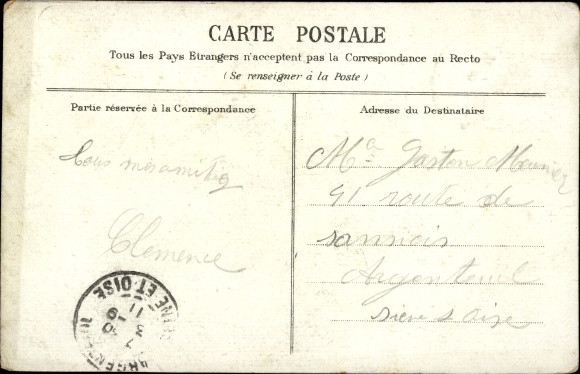 CARTE POSTALE
Tous les Pays Etrangers n'acceptent pas la Correspondance au Recto
(Se renseigner à la Poste)
Partie réservée à la Correspondance
Adresse du Destinataire
Clémence
Gaston Meunier
91 route de
sannois
Argenteuil
seine & oise
NE ET OISE